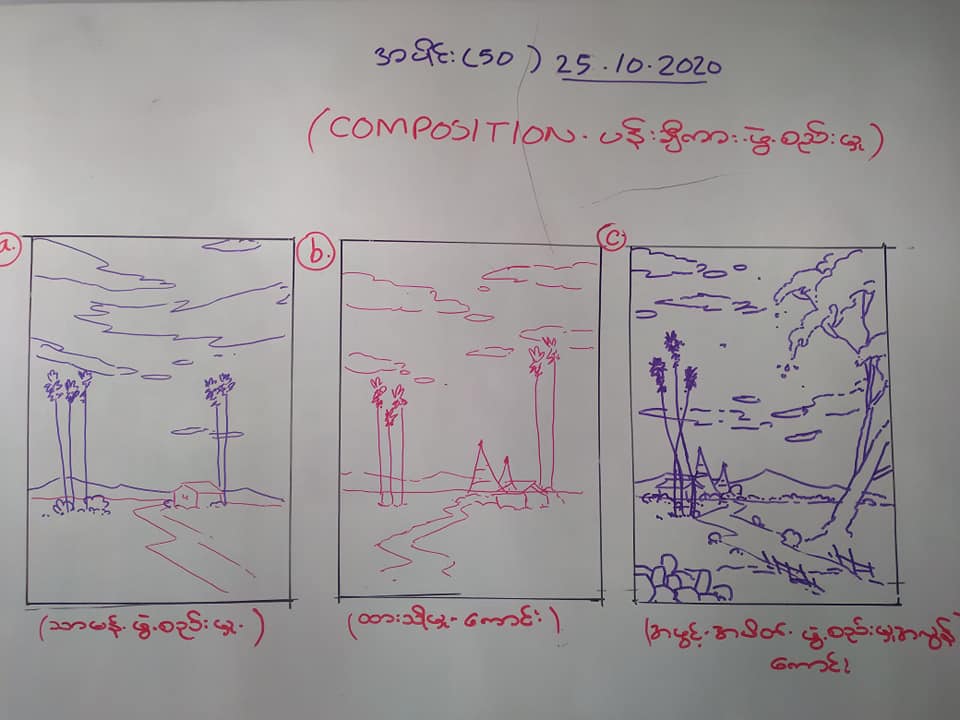 အပိုင်း(50) 25.10.2020
(COMPOSITION. ပန်းချီကား.ဖွဲ့.စည်းမှု)
a. b. c.
(သာမန်.ဖွဲ့.စည်းမှု.) (ထားသိုမှု-ကောင်း) (အဖွင့်.အပိတ်.ဖွဲ့.စည်းမှုအလွန်
ကောင်း)